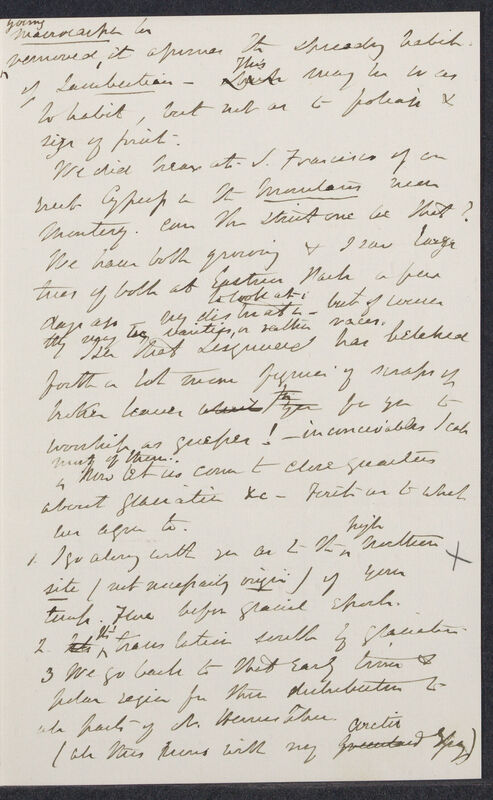 young
macrocarpa be
removed, it assumes the spreading habit
of Lambertiana — This may be so as
to habit, but not as to foliage &
size of fruit.
We did hear at S. Francisco of an
erect Cypress in the Mountains near
Monterey. Can the strict one be that?
We have both growing & I saw large
trees of both at Epsteins Park a few
days ago, to look at:
they may be varieties, or rather races.
has belched
forth a lot more figures of scraps of
broken leaves for you to
worship as guesses! — inconceivables I call
most of them.
Now let us come to close quarters
about glaciation &c — First as to what
we agree to.
1. I go along with you as to the high Northern
site (not necessarily origin) of your
temp. Flora before glacial Epoch.
2. The translation south by glaciation
3 We go back to that early time &
polar region for their distribution to
all parts of N. Hemisphere.
(all this runs with my Arctic Greenland Essay)